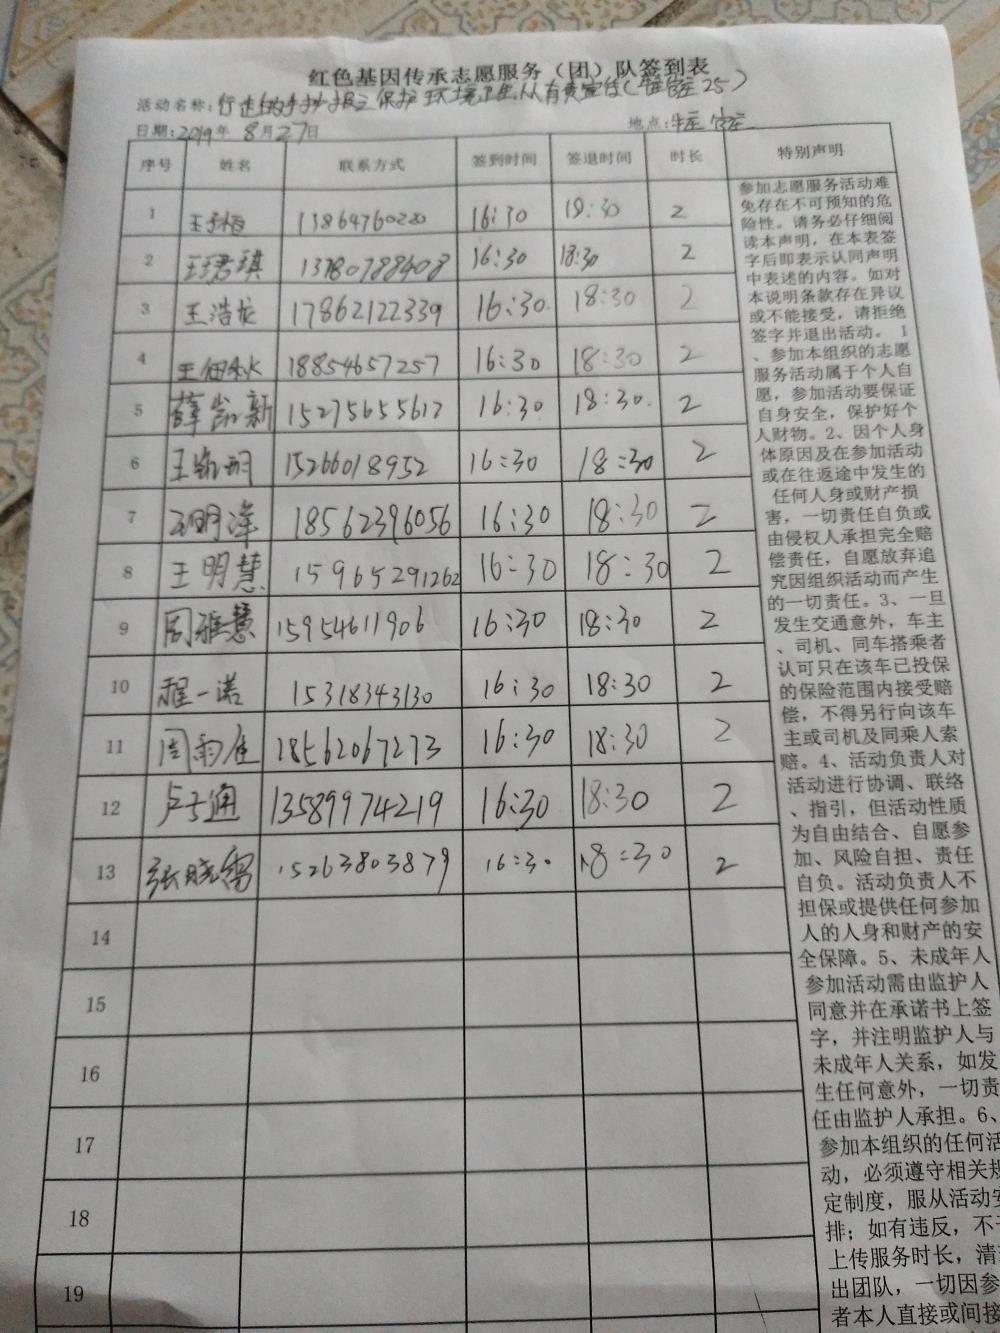 红色基因传承志愿服务（团）队签到表
活动名称：行走的手抄报之保护环境卫生,人人有责宣传(25)
日期：2019年 8月27日 地点：
序号 姓名 联系方式 签到时间 签退时间 时长 特别声明
1 13864760220 16:30 18:30 2
2 王君琪 13780788408 16:30 18:30 2
3 王浩龙 17862122339 16:30 18:30 2
4 18854657257 16:30 18:30 2
5 薛凯新 15275655617 16:30 18:30 2
6 15266018952 16:30 18:30 2
7 18562396056 16:30 18:30 2
8 王明慧 15965291262 16:30 18:30 2
9 周雅慧 15954611906 16:30 18:30 2
10 程一诺 15318343130 16:30 18:30 2
11 18562067273 16:30 18:30 2
12 13589974219 16:30 18:30 2
13 张晓雪 15263803879 16:30 18:30 2
14
15
16
17
18
19
参加志愿服务活动难
免存在不可预知的危
险性。请务必仔细阅
读本声明，在本表签
字后即表示认同声明
中表述的内容。如对
本说明条款存在异议
或不能接受，请拒绝
签字并退出活动。 1
、参加本组织的志愿
服务活动属于个人自
愿，参加活动要保证
自身安全，保护好个
人财物。2、因个人身
体原因及在参加活动
或在往返途中发生的
任何人身或财产损
害，一切责任自负或
由侵权人承担完全赔
偿责任，自愿放弃追
究因组织活动而产生
的一切责任。3、一旦
发生交通意外，车主
、司机、同车搭乘者
认可只在该车已投保
的保险范围内接受赔
偿，不得另行向该车
主或司机及同乘人索
赔。4、活动负责人对
活动进行协调、联络
、指引，但活动性质
为自由结合、自愿参
加、风险自担、责任
自负。活动负责人不
担保或提供任何参加
人的人身和财产的安
全保障。5、未成年人
参加活动需由监护人
同意并在承诺书上签
字，并注明监护人与
未成年人关系，如发
生任何意外，一切责
任由监护人承担。6、
参加本组织的任何活
动，必须遵守相关规
定制度，服从活动安
排；如有违反，不
上传服务时长，清
出团队，一切因参
者本人直接或间接